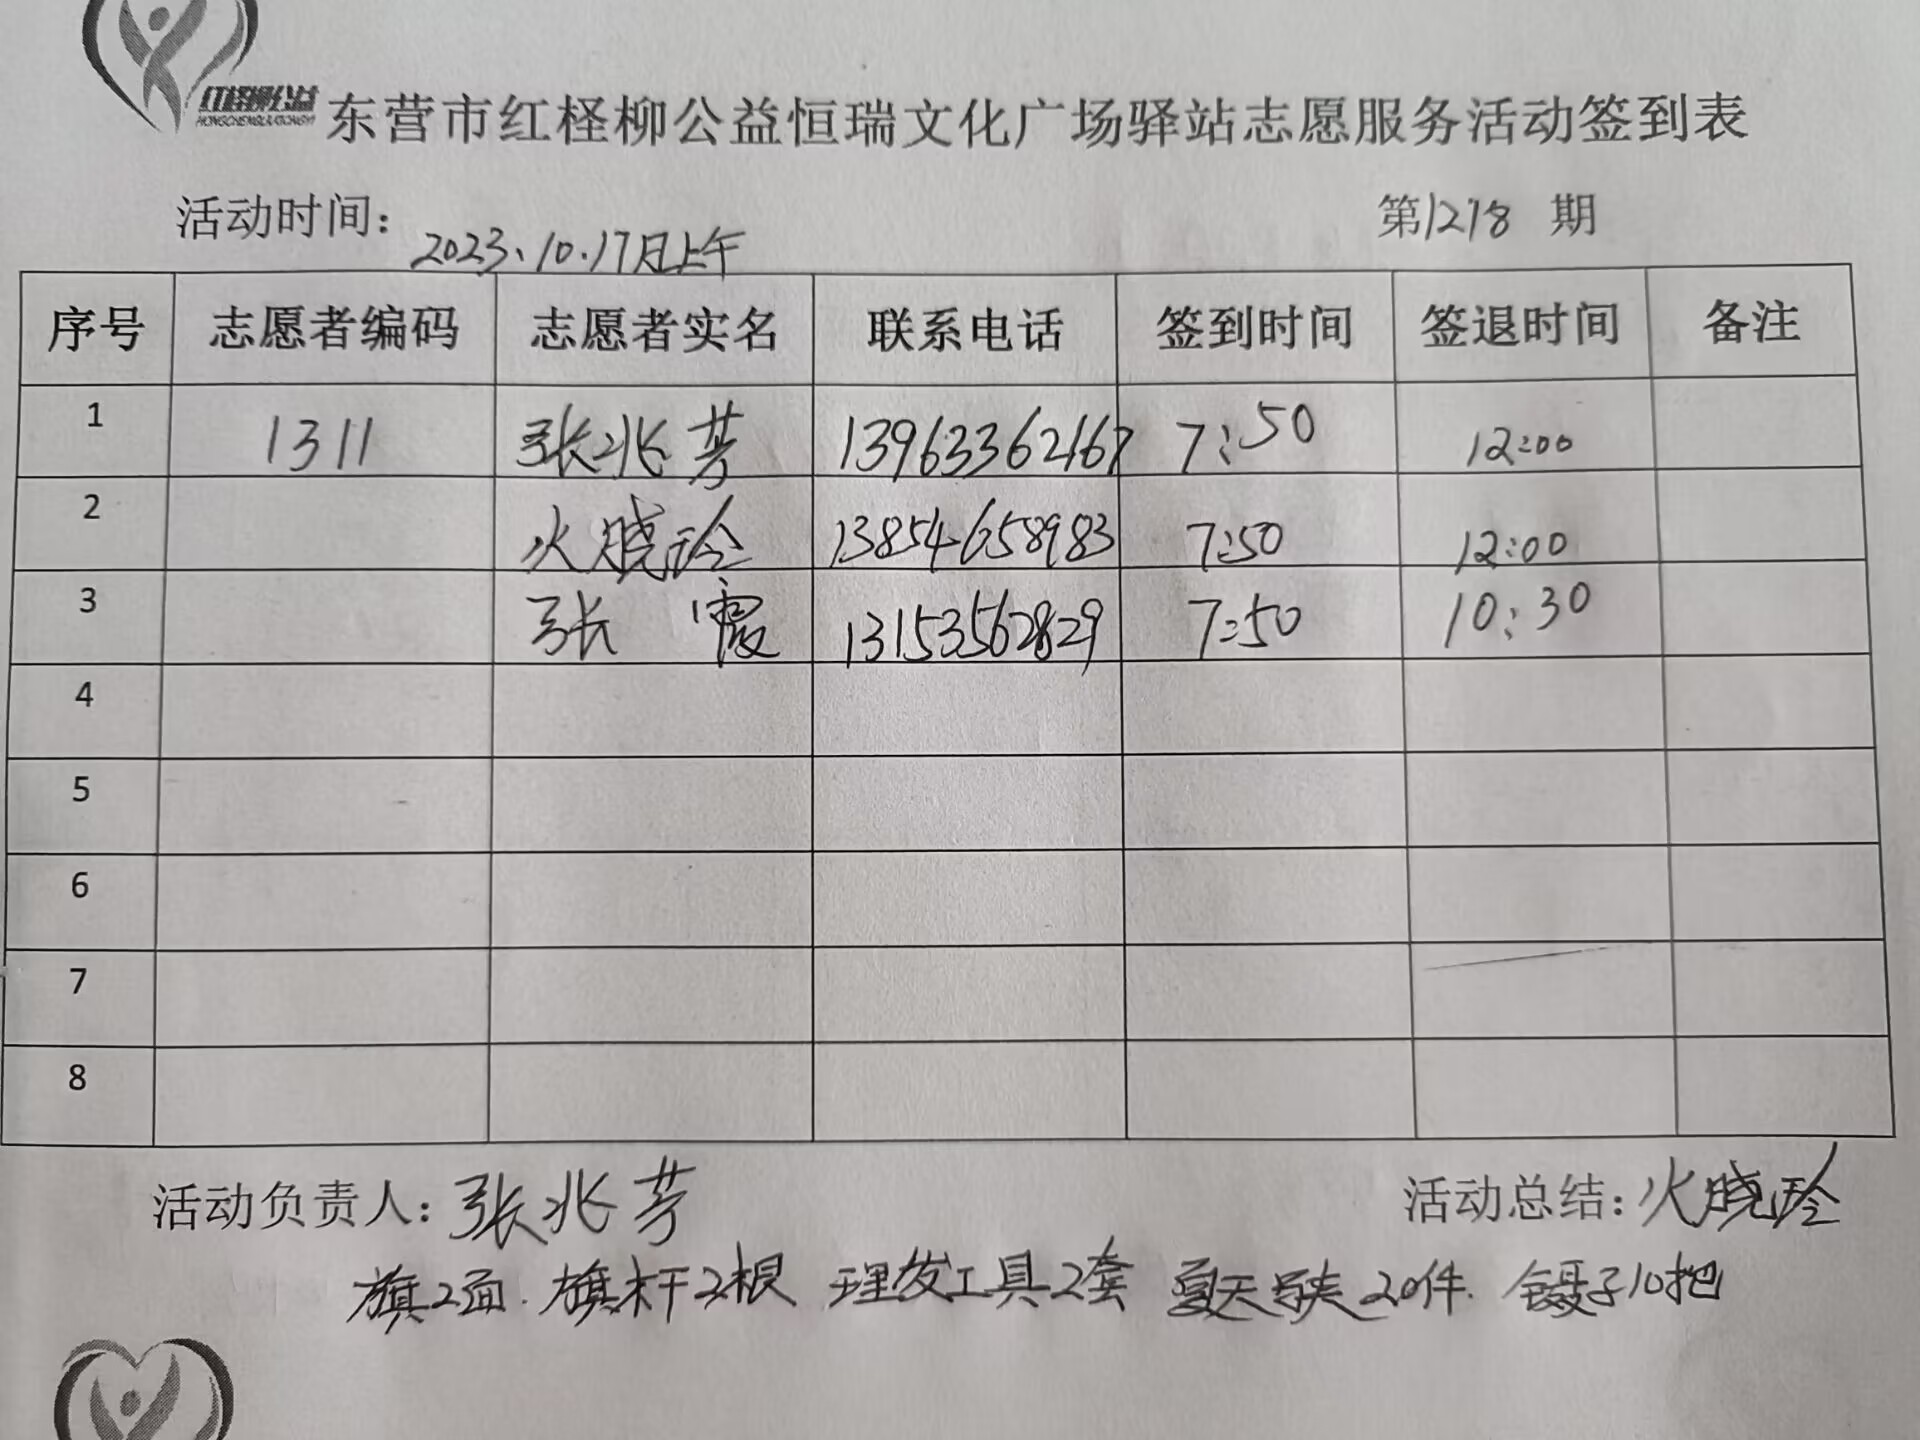 红柽柳公益
HONGCHENGLIUGONGYI
东营市红柽柳公益恒瑞文化广场驿站志愿服务活动签到表
活动时间：2023、10.17日上午 第1218期
序号 志愿者编码 志愿者实名 联系电话 签到时间 签退时间 备注
1 1311 张兆芳 13963362167 7:50 12:00
2 火晓玲 13854658983 7:50 12:00
3 张霞 13153562829 7:50 10:30
4
5
6
7
8
活动负责人：张兆芳 活动总结：火晓玲
旗2面. 旗杆2根 理发工具2套 夏天 20件. 镊子10把